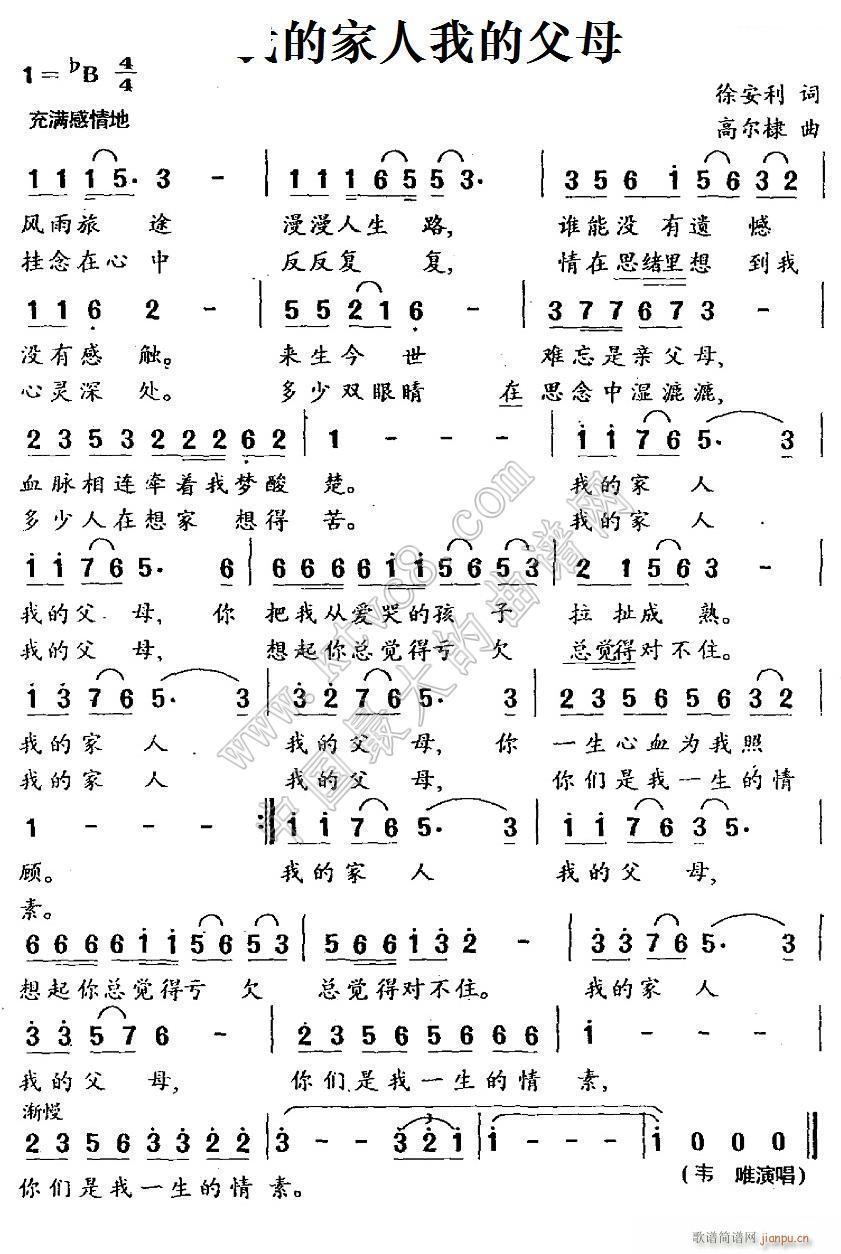 我的家人我的父母
1=♭B 4/4
徐安利 词
充满感情地
高尔棣 曲
1 1 1 5· 3 - | 1 1 1 6 5 5 3· | 3 5 6 i 5 6 3 2
风雨旅 途 漫漫人生 路, 谁能没 有遗 憾
挂念在心中 反反复 复, 情在思绪里想 到我
1 1 6 2 - | 5 5 2 1 6 - | 3 7 7 6 7 3 -
没有感 触。 来生今 世 难忘是亲父母,
心灵深 处。 多少双眼睛 在思念中湿漉漉,
2 3 5 3 2 2 2 6 2 | 1 - - - | i i 7 6 5· 3
血脉相连牵着我梦酸 楚。 我的家 人
多少人在想家 想得 苦。 我的家 人
i i 7 6 5· 6 | 6 6 6 6 i i 5 6 5 3 | 2 1 5 6 3 -
我的父 母, 你 把我从爱哭的孩 子 拉 扯成 熟。
我的父 母, 想起你总觉得亏 欠 总觉得对不住。
i 3 7 6 5· 3 | 3 2 7 6 5· 3 | 2 3 5 6 5 6 3 2
我的家 人 我的父 母, 你 一生心血为我照
我的家 人 我的父 母, 你们是我一生的情
1 - - - :‖ i i 7 6 5· 3 | i i 7 6 5· 3
顾。 我的家 人 我的父 母,
素。
6 6 6 6 i i 5 6 5 3 | 5 6 6 i 3 2 - | 3 3 7 6 5· 3
想起你总觉得亏 欠 总觉得对不住。 我的家 人
3 3 5 7 6 - | 2 3 5 6 5 6 6 6 | i - -
我的父 母, 你们是我一生的情 素,
渐慢
2 3 5 6 3 3 2 2 | 3 - - 3 2 i | i - - - | i 0 0 0 ‖
你们是我一生的情 素。
(韦 唯演唱)
www.ktvc8.com
中国最大的曲谱网
歌谱简谱网
jianpu.cn